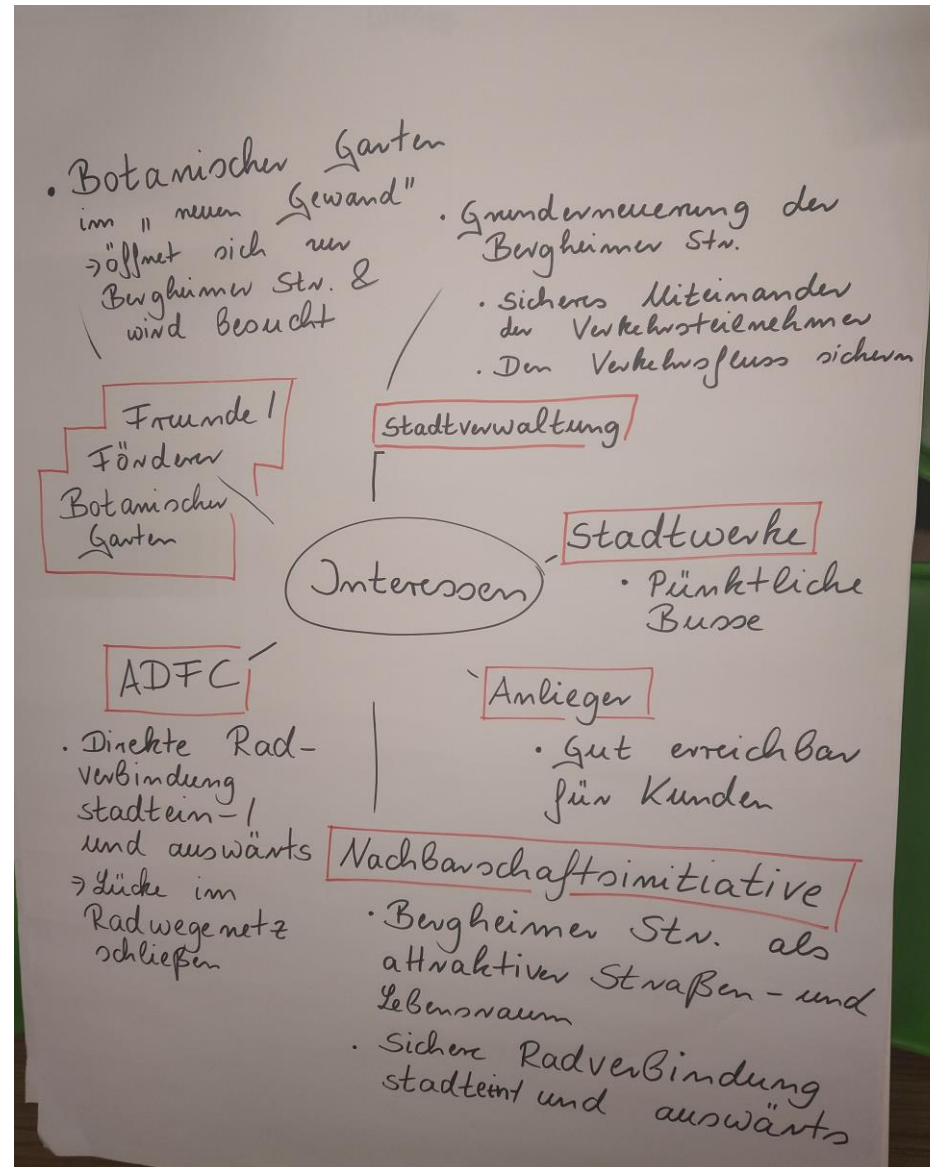 • Botanischer Garten
im „neuen Gewand"
→ öffnet sich zur
Bergheimer Str. &
wird besucht
• Grunderneuerung der
Bergheimer Str.
• Sicheres Miteinander
der Verkehrsteilnehmer
• Den Verkehrsfluss sichern
Freunde/
Förderer
Botanischer
Garten
Stadtverwaltung
Interessen
Stadtwerke
• Pünktliche
Busse
ADFC
• Direkte Rad-
verbindung
stadtein-/
und auswärts
→ Lücke im
Radwegenetz
schließen
Anlieger
• Gut erreichbar
für Kunden
Nachbarschaftsinitiative
• Bergheimer Str. als
attraktiver Straßen- und
Lebensraum
• Sichere Radverbindung
stadtein- und auswärts